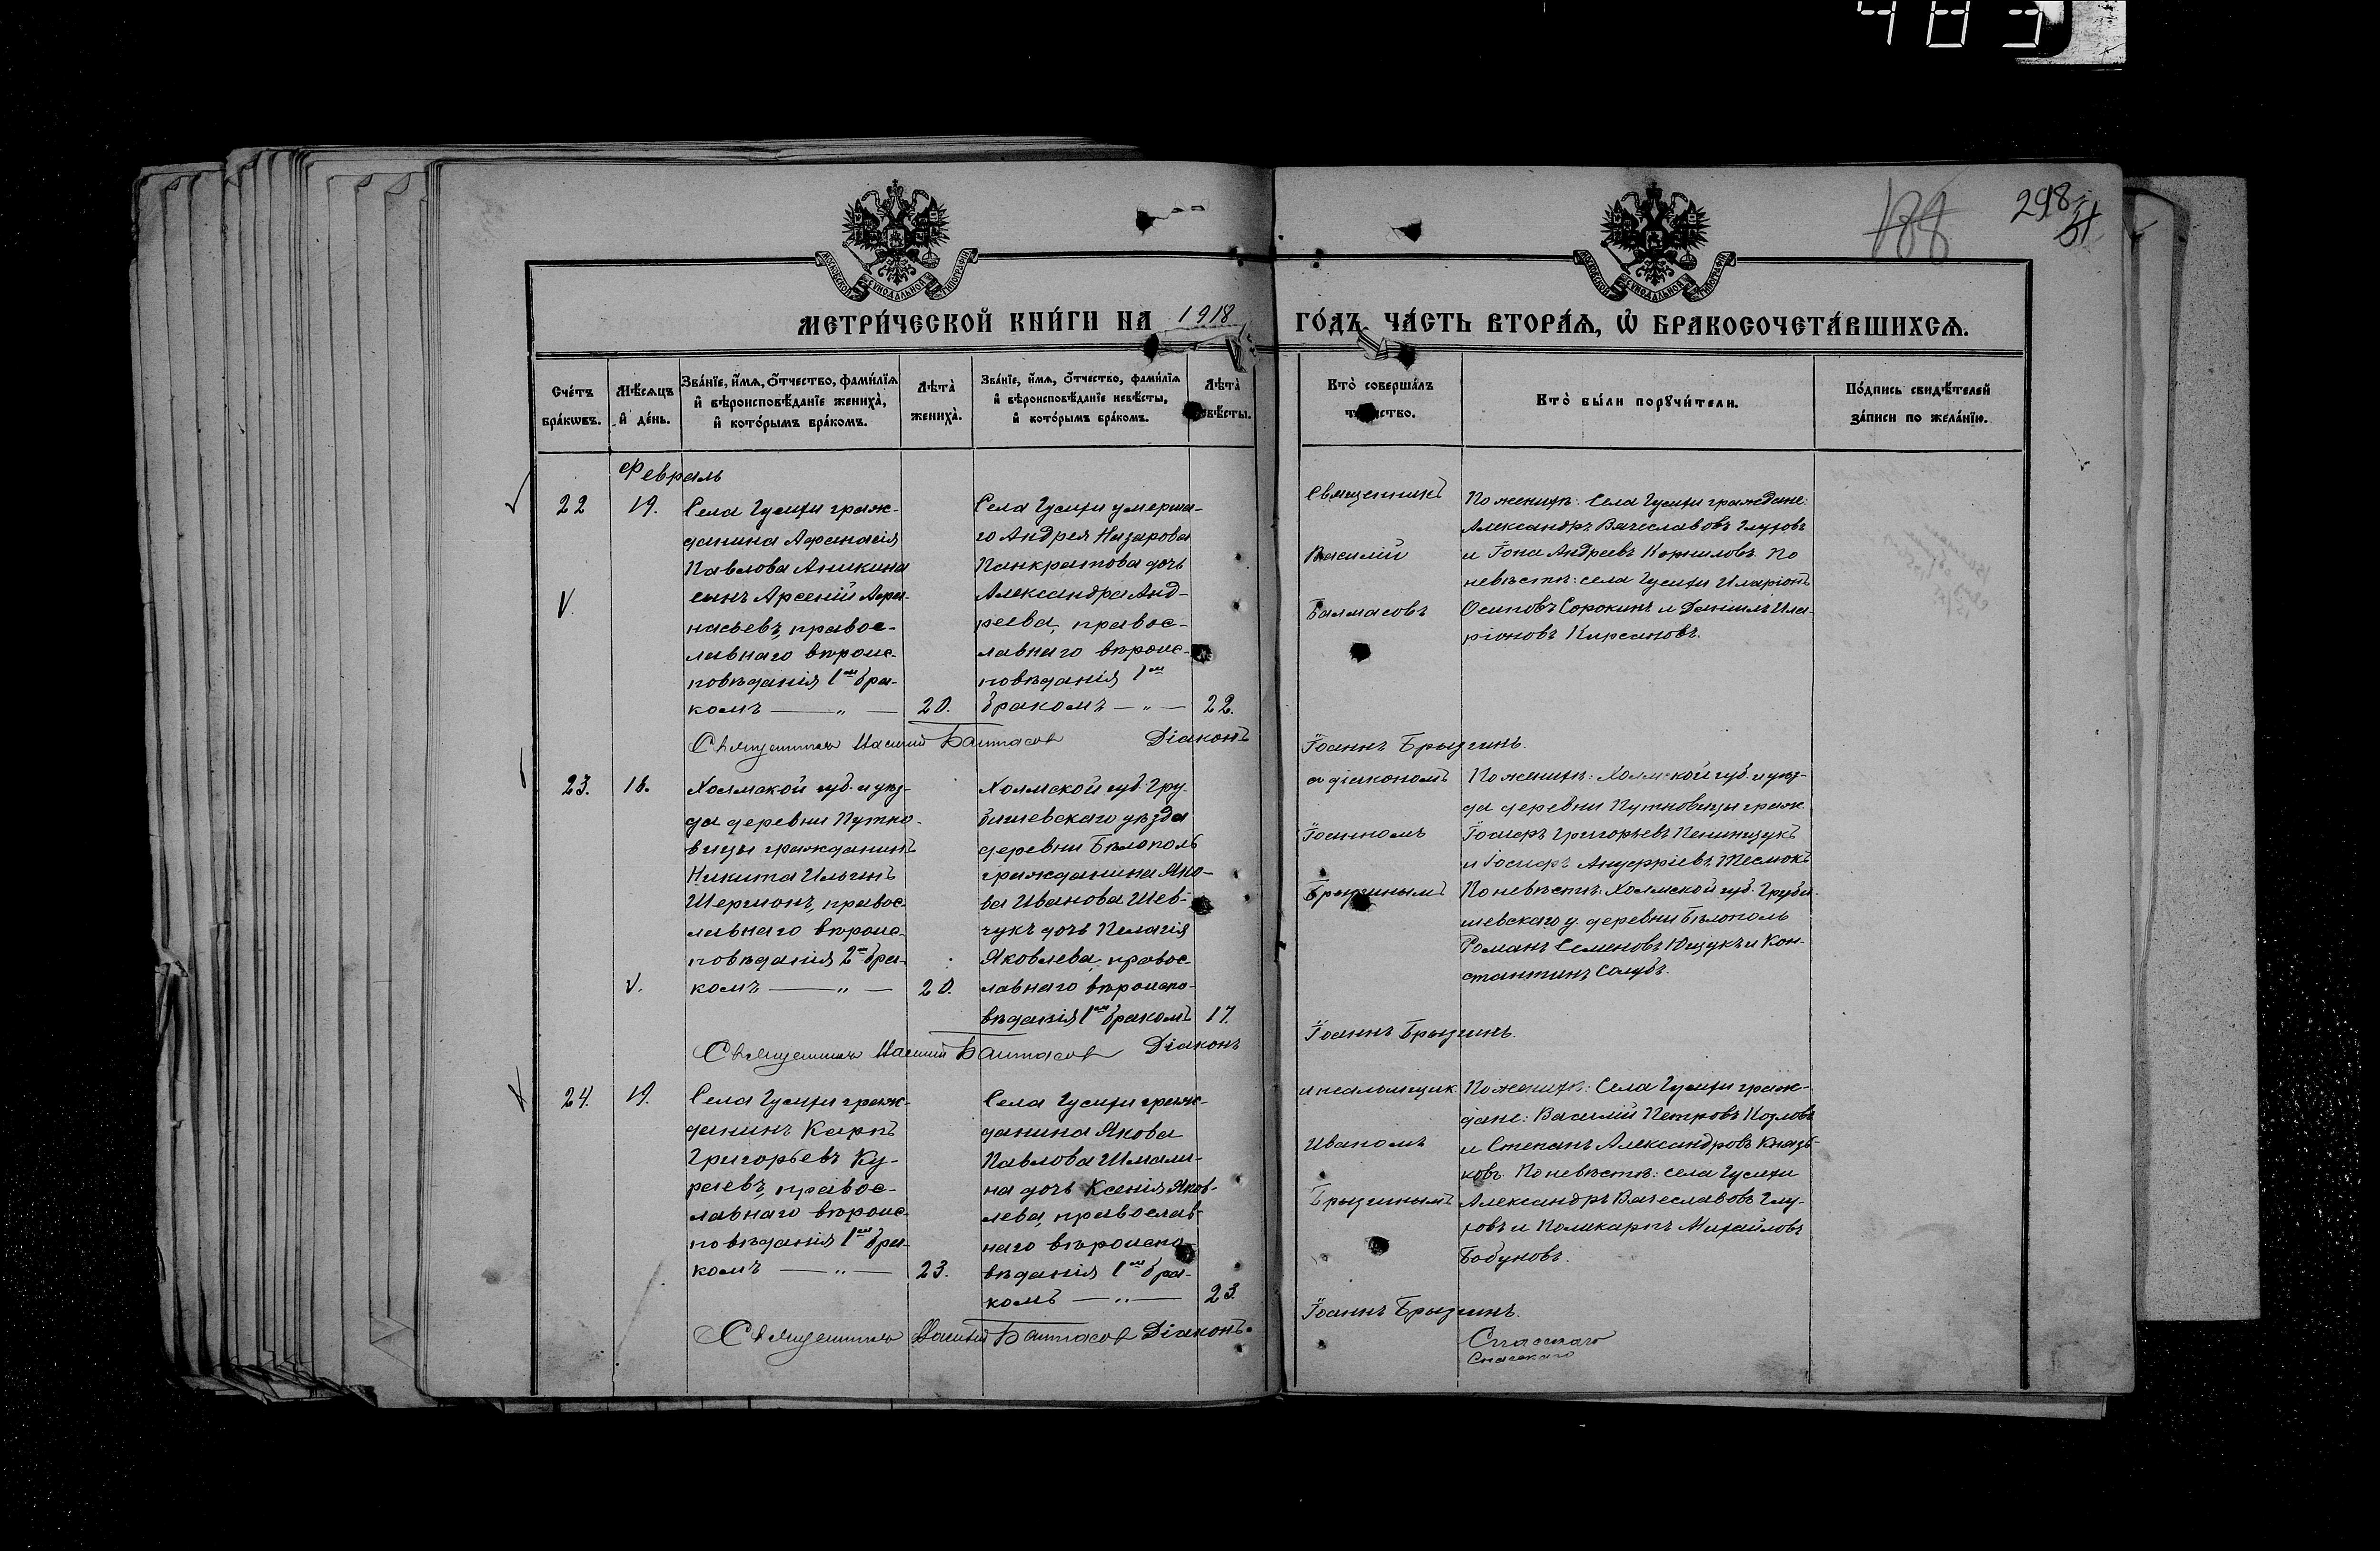 483
188
298
51
МОСКОВСКОЙ СѴНОДАЛЬНОЙ ТИПОГРАФІИ
МОСКОВСКОЙ СѴНОДАЛЬНОЙ ТИПОГРАФІИ
МЕТРИ́ЧЕСКОЙ КНИ́ГИ НА 1918 ГО́ДЪ, ЧА́СТЬ ВТОРА́Ѧ, Ѡ҆ БРАКОСОЧЕТА́ВШИХСѦ.
Сче́тъ бра́кѡвъ.
Мѣ́сѧцъ и҆ де́нь.
Зва́нїе, и҆́мѧ, о҆́тчество, фами́лїѧ и҆ вѣроисповѣ́данїе жениха̀, и҆ кото́рымъ бра́комъ.
Лѣта̀ жениха̀.
Зва́нїе, и҆́мѧ, о҆́тчество, фами́лїѧ и҆ вѣроисповѣ́данїе невѣ́сты, и҆ кото́рымъ бра́комъ.
Лѣта̀ невѣ́сты.
Кто̀ соверша́лъ таинство.
Кто̀ бы́ли порꙋчи́тели.
По́дпись свидѣ́телей за́писи по жела́нїю.
Февраль
22
19.
Села Гусихи граж-
данина Афанасія
Павлова Аникина
сынъ Арсеній Афа-
насьевъ, правос-
лавнаго вѣроис-
повѣданія 1ым бра-
комъ — „ —
20.
Села Гусихи умерша-
го Андрея Назарова
Панкратова дочь
Александра Анд-
реева, правос-
лавнаго вѣроис-
повѣданія 1ым
бракомъ — „ —
22.
Священникъ
Василій
Балмасовъ
По женихѣ: Села Гусихи граждане:
Александръ Вячеславовъ Глуховъ
и Іона Андреевъ Корниловъ. По
невѣстѣ: села Гусихи Иларіонъ
Осиповъ Сорокинъ и Даніилъ Ила-
ріоновъ Кирсановъ.
Священникъ Василий Балмасовъ Діаконъ Іоаннъ Брызгинъ.
23.
18.
Холмской губ. и уѣз-
да деревни Путно-
вицы гражданинъ
Никита Ильинъ
Шергионъ, правос-
лавнаго вѣроис-
повѣданія 2ым бра-
комъ — „ —
20.
Холмской губ. Гру-
бишевскаго уѣзда
деревни Бѣлополь
гражданина Яко-
ва Иванова Шев-
чукъ дочь Пелагія
Яковлева, правос-
лавнаго вѣроиспо-
вѣданія 1ым бракомъ
17.
съ діакономъ
Іоанномъ
По женихѣ: Холмской губ. и уѣз-
да деревни Путновицы граж.
Іосифъ Григорьевъ
и Іосифъ
По невѣстѣ: Холмской губ. Груби-
шевскаго у. деревни Бѣлополь
Романъ Семеновъ Ющукъ и Кон-
стантинъ Голубъ.
Священникъ Василий Балмасовъ Діаконъ Іоаннъ Брызгинъ.
24.
19.
Села Гусихи граж-
данинъ Карпъ
Григорьевъ Ку-
раевъ, правос-
лавнаго вѣроис-
повѣданія 1ым бра-
комъ — „ —
23.
Села Гусихи граж-
данина Якова
Павлова Шмали-
на дочь Ксенія Яков-
лева, православ-
наго вѣроиспо-
вѣданія 1ым бра-
комъ — „ —
23.
и псаломщик.
Иваномъ
По женихѣ: Села Гусихи граж-
дане: Василій Петровъ Козловъ
и Степанъ Александровъ Князь-
ковъ. По невѣстѣ: села Гусихи
Александръ Вячеславовъ Глу-
ховъ и Поликарпъ Михайловъ
Бобуновъ.
Священникъ Василий Балмасовъ Діаконъ Іоаннъ Брызгинъ.
Спасскаго
Спасскаго